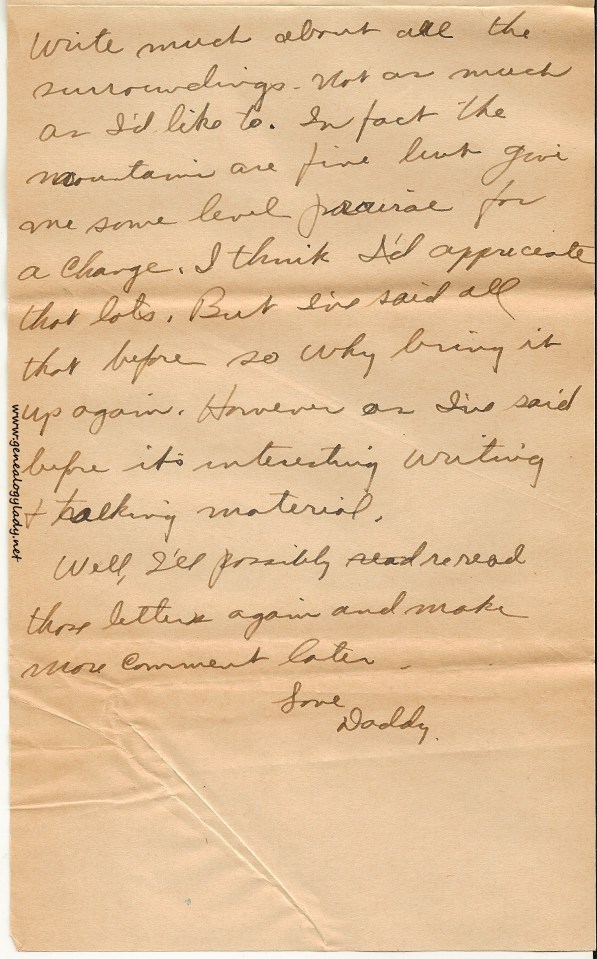 Write much about all the
surroundings. Not as much
as I'd like to. In fact the
mountains are fine but give
me some level prairae for
a change. I think I'd appreciate
that lots. But I've said all
that before so why bring it
up again. However as I've said
before it's interesting writing
+ talking material.
Well, I'll possibly read reread
those letters again and make
more comment later.
Love
Daddy.
www.genealogylady.net